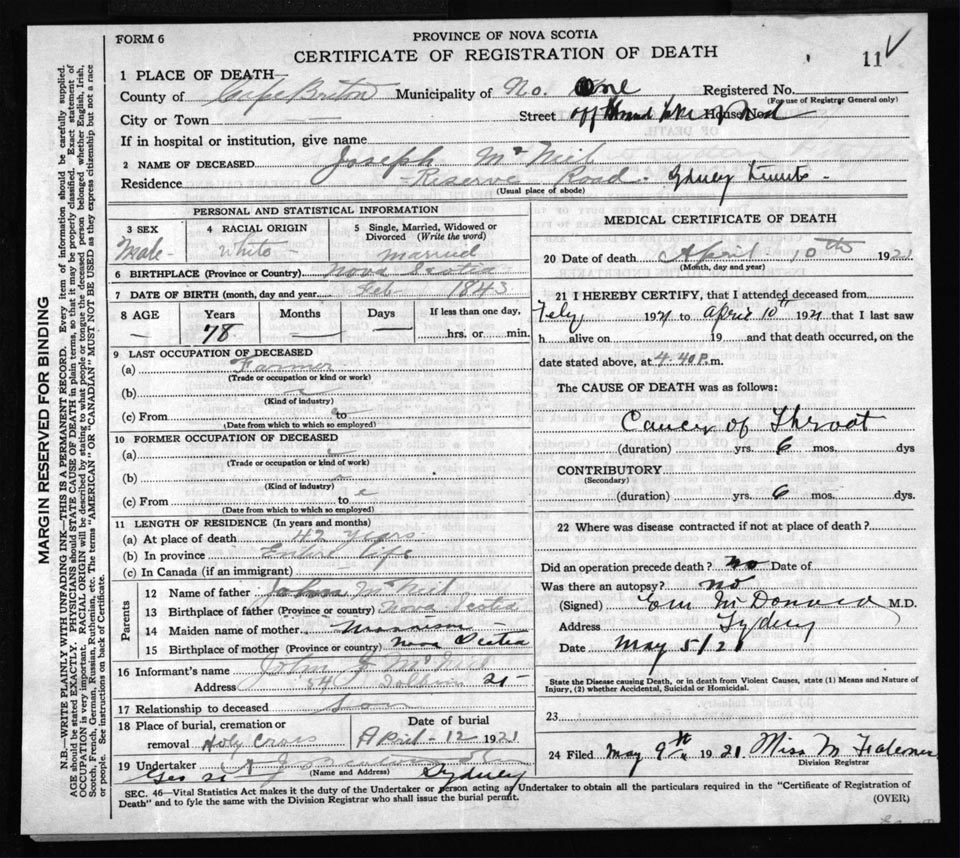 FORM 6
PROVINCE OF NOVA SCOTIA
CERTIFICATE OF REGISTRATION OF DEATH
11 ✓
1 PLACE OF DEATH—
County of Cape Breton Municipality of No. One Registered No.
(For use of Registrar General only)
City or Town Street off House No.
If in hospital or institution, give name
2 NAME OF DECEASED Joseph McNeil
Residence Reserve Road Sydney
(Usual place of abode)
PERSONAL AND STATISTICAL INFORMATION
3 SEX Male
4 RACIAL ORIGIN White
5 Single, Married, Widowed or Divorced (Write the word) married
6 BIRTHPLACE (Province or Country) Nova Scotia
7 DATE OF BIRTH (month, day and year) Feb 1843
8 AGE Years 78 Months — Days — If less than one day, hrs. or min.
9 LAST OCCUPATION OF DECEASED
(a) Farmer
(Trade or occupation or kind of work)
(b)
(Kind of industry)
(c) From to
(Date from which to which so employed)
10 FORMER OCCUPATION OF DECEASED
(a)
(Trade or occupation or kind of work)
(b)
(Kind of industry)
(c) From to
(Date from which to which so employed)
11 LENGTH OF RESIDENCE (In years and months)
(a) At place of death 42 years
(b) In province Entire life
(c) In Canada (if an immigrant)
Parents
12 Name of father John McNeil
13 Birthplace of father (Province or country) Nova Scotia
14 Maiden name of mother Morrison
15 Birthplace of mother (Province or country) Nova Scotia
16 Informant's name John J McNeil
Address 54 St
17 Relationship to deceased Son
18 Place of burial, cremation or removal Holy Cross
Date of burial April - 12 1921
19 Undertaker A J
(Name and Address)
Geo St Sydney
MEDICAL CERTIFICATE OF DEATH
20 Date of death April 10th 1921
(Month, day and year)
21 I HEREBY CERTIFY, that I attended deceased from
Feby 1921 to April 10th 1921 that I last saw
h alive on 19 and that death occurred, on the
date stated above, at 4.40 P.m.
The CAUSE OF DEATH was as follows:
Cancer of Throat
(duration) yrs. 6 mos. dys
CONTRIBUTORY
(Secondary)
(duration) yrs. 6 mos. dys.
22 Where was disease contracted if not at place of death?
Did an operation precede death? no Date of
Was there an autopsy? no
(Signed) McDonald M.D.
Address Sydney
Date May 5/21
State the Disease causing Death, or in death from Violent Causes, state (1) Means and Nature of
Injury, (2) whether Accidental, Suicidal or Homicidal.
23
24 Filed May 9th 1921 Miss M
Division Registrar
SEC. 46—Vital Statistics Act makes it the duty of the Undertaker or person acting as Undertaker to obtain all the particulars required in the "Certificate of Registration of
Death" and to fyle the same with the Division Registrar who shall issue the burial permit.
(OVER)
MARGIN RESERVED FOR BINDING
N.B.—WRITE PLAINLY WITH UNFADING INK—THIS IS A PERMANENT RECORD. Every item of information should be carefully supplied.
AGE should be stated EXACTLY. PHYSICIANS should STATE CAUSE OF DEATH in plain terms, so that it may be properly classified. Exact statement of
OCCUPATION is very important. RACIAL ORIGIN will be described by stating to what people or tongue the deceased person belonged whether English, Irish,
Scotch, French, German, Russian, Ruthenian, etc. The terms "AMERICAN" OR "CANADIAN" MUST NOT BE USED as they express citizenship but not a race
or people. See instructions on back of Certificate.